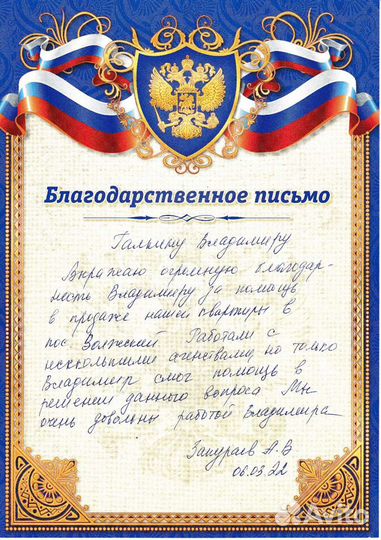 Благодарственное письмо
Галкину Владимиру
Выражаю огромную благодар-
ность Владимиру за помощь
в продаже нашей квартиры в
пос. Волжский. Работали с
несколькими агенствами, но только
Владимир смог помощь в
решении данного вопроса. Мы
очень довольны работой Владимира
А.В
06.03.22
Avito